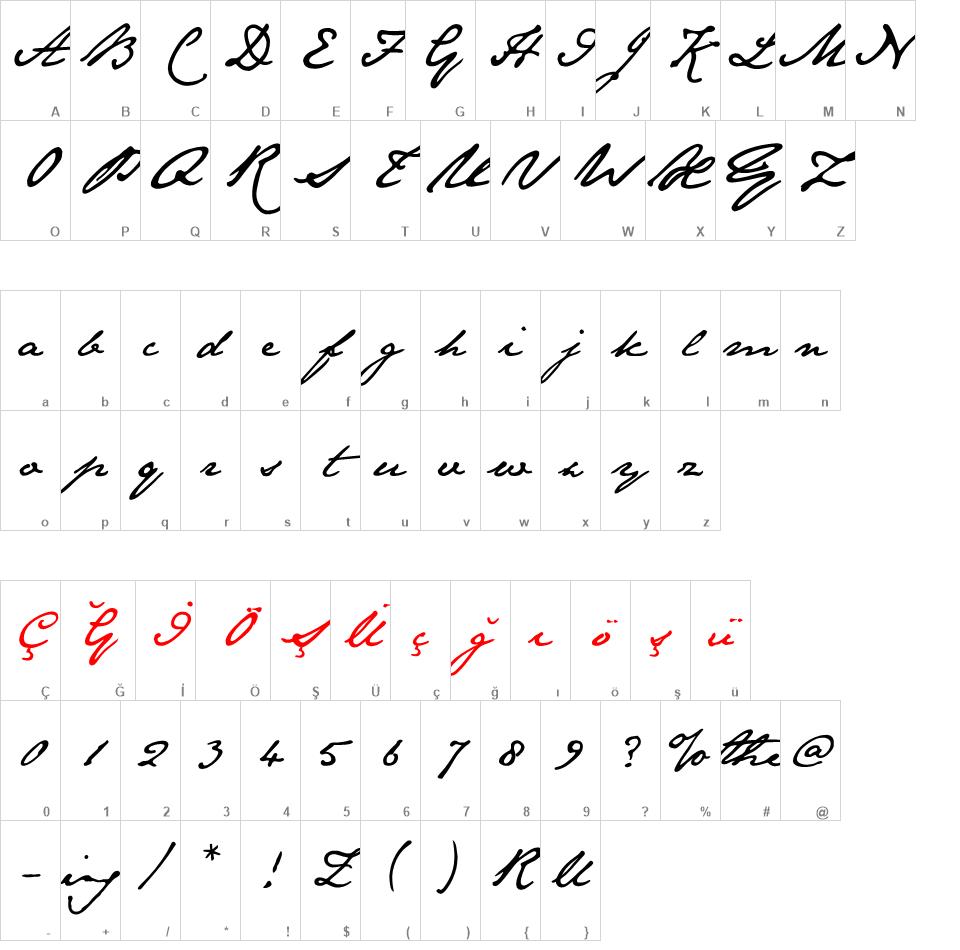 A B C D E F G H I J K L M N
A B C D E F G H I J K L M N
O P Q R S T U V W X Y Z
O P Q R S T U V W X Y Z
a b c d e f g h i j k l m n
a b c d e f g h i j k l m n
o p q r s t u v w x y z
o p q r s t u v w x y z
Ç Ğ İ Ö Ş Ü ç ğ ı ö ş ü
Ç Ğ İ Ö Ş Ü ç ğ ı ö ş ü
0 1 2 3 4 5 6 7 8 9 ? % the @
0 1 2 3 4 5 6 7 8 9 ? % # @
- ing / * ! Z ( ) R U
- + / * ! $ ( ) { }